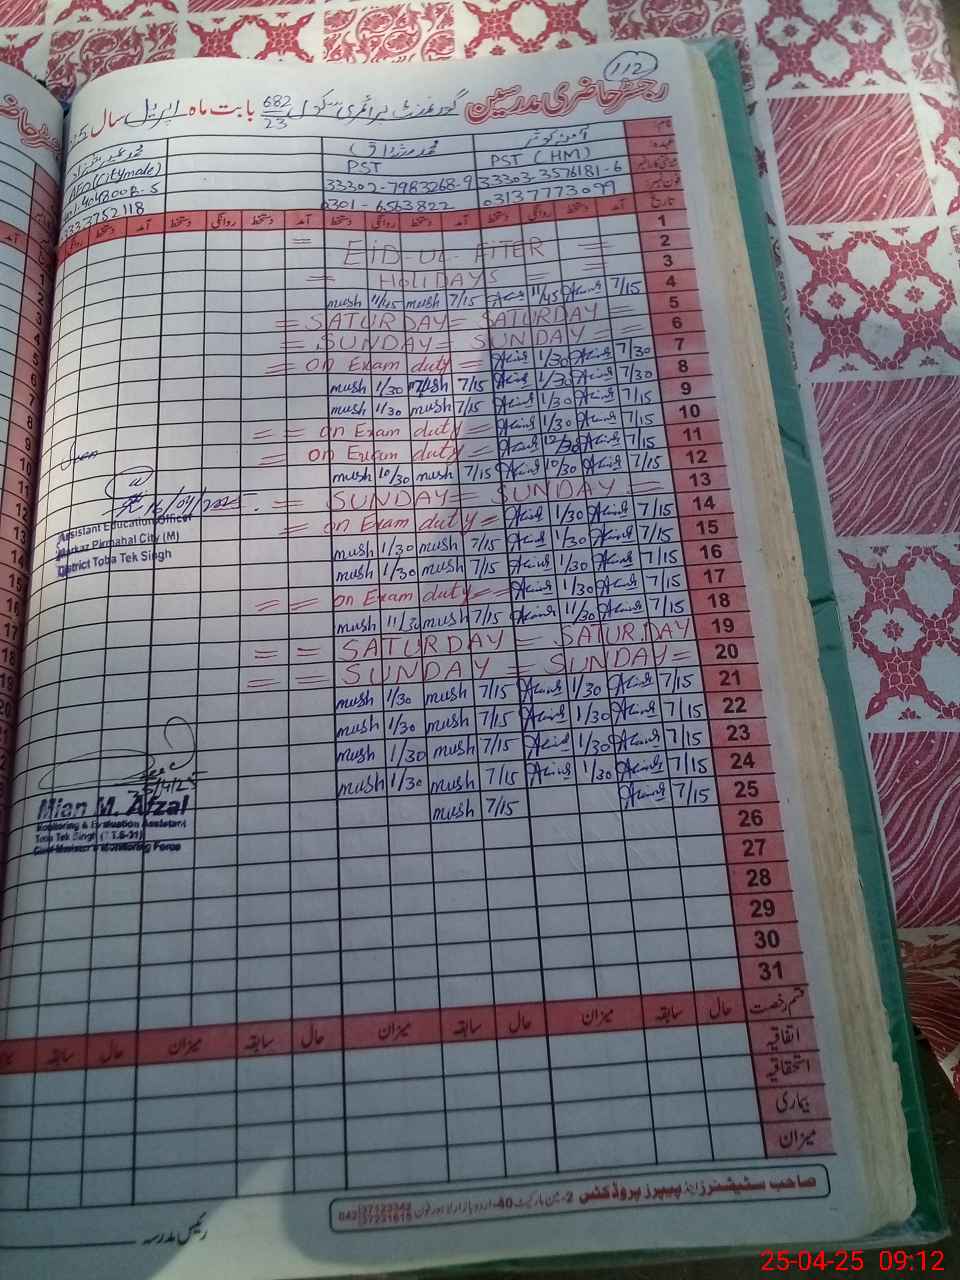 112
رجسٹر حاضری مدرسین گورنمنٹ پرائمری سکول 682/23 بابت ماہ اپریل سال
نام
عہدہ PST (HM) PST
شناختی کارڈ نمبر 33303-3576181-6 33302-7983268-9
فون نمبر 03137773099 0301-6563822
تاریخ آمد دستخط روانگی دستخط آمد دستخط روانگی دستخط آمد دستخط روانگی دستخط
1
2 = EID-UL-FITER =
3 = HOLIDAYS =
4 7/15 11/45 7/15 mush 11/45 mush
5 = SATURDAY = SATURDAY =
6 = SUNDAY = SUNDAY =
7 7/30 1/30 = on Exam duty =
8 7/30 1/30 7/15 mush 1/30 mush
9 7/15 1/30 7/15 mush 1/30 mush
10 7/15 1/30 = = on Exam duty =
11 7/15 12/30 = on Exam duty =
12 7/15 10/30 7/15 mush 10/30 mush
13 = SUNDAY = SUNDAY =
14 7/15 1/30 = on Exam duty =
15 7/15 1/30 7/15 mush 1/30 mush
16 7/15 1/30 7/15 mush 1/30 mush
17 7/15 1/30 = = on Exam duty =
18 7/15 11/30 7/15 mush 11/30 mush
19 = = SATURDAY = SATURDAY
20 = = SUNDAY = SUNDAY =
21 7/15 1/30 7/15 mush 1/30 mush
22 7/15 1/30 7/15 mush 1/30 mush
23 7/15 1/30 7/15 mush 1/30 mush
24 7/15 1/30 7/15 mush 1/30 mush
25 7/15 7/15 mush
26
27
28
29
30
31
16/04/2025
Assistant Education Officer
Markaz Pirmahal City (M)
District Toba Tek Singh
25/4/25
Mian M. Afzal
Monitoring & Evaluation Assistant
Toba Tek Singh (T.T.S-31)
Chief Minister's Monitoring Force
قسم رخصت حال سابقہ میزان حال سابقہ میزان حال سابقہ میزان حال سابقہ
اتفاقیہ
استحقاقیہ
بیماری
میزان
صاحب سٹیشنرز اینڈ پیپرز پروڈکٹس 2-مین مارکیٹ 40-اردو بازار لاہور فون 042
37123342
37231615
رئیس مدرسہ
25-04-25 09:12